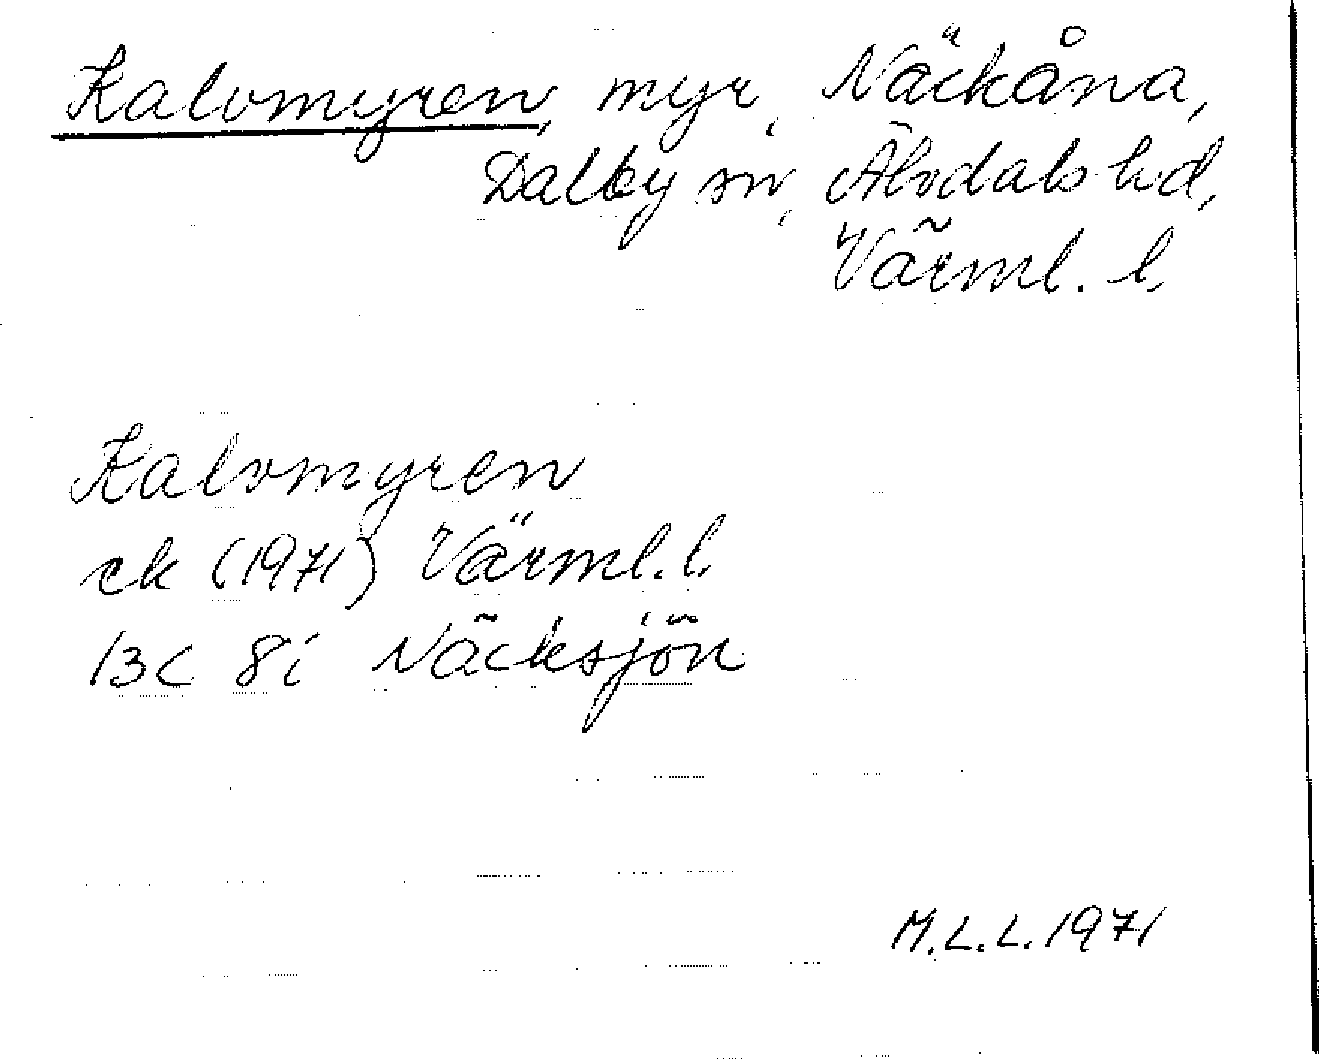 Kalvmyren, myr, Näckåna,
Dalby sn, Älvdals hd,
Värml. l.
Kalvmyren
ek (1971) Värml. l.
13C 8i Näcksjön
M.L.L. 1971